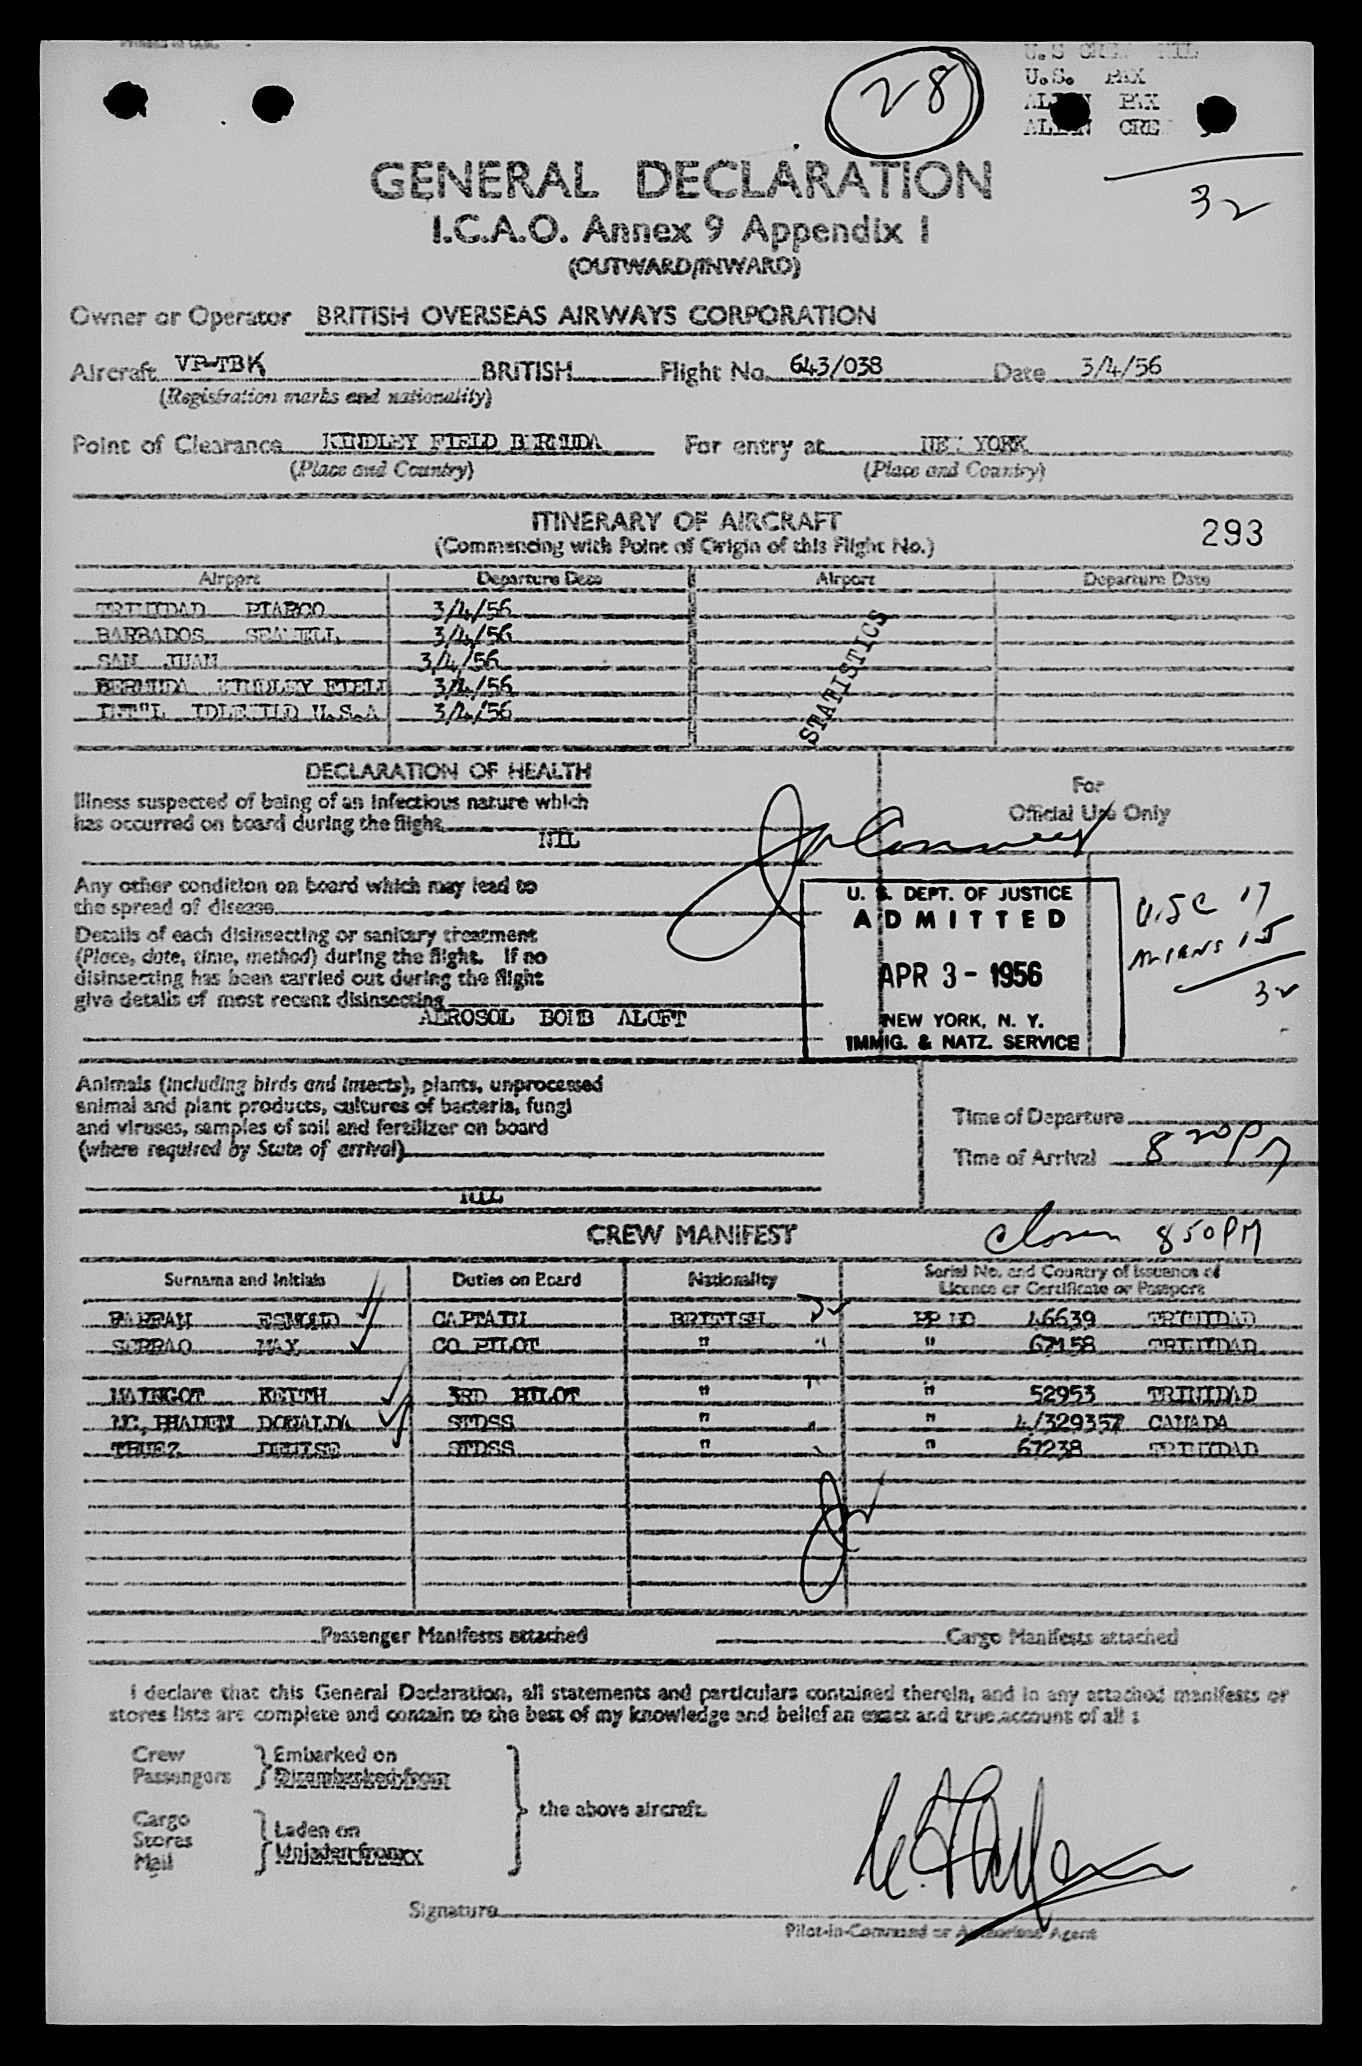 Printed in
28
U.S. CREW NIL
U.S. PAX
ALIEN PAX
ALIEN CREW
32
GENERAL DECLARATION
I.C.A.O. Annex 9 Appendix 1
(OUTWARD/INWARD)
Owner or Operator BRITISH OVERSEAS AIRWAYS CORPORATION
Aircraft VP-TBK BRITISH Flight No. 643/038 Date 3/4/56
(Registration marks and nationality)
Point of Clearance KINDLEY FIELD BERMUDA For entry at NEW YORK
(Place and Country) (Place and Country)
ITINERARY OF AIRCRAFT
293
(Commencing with Point of Origin of this Flight No.)
Airport Departure Date Airport Departure Date
TRINIDAD PIARCO 3/4/56
BARBADOS SEAWELL 3/4/56
SAN JUAN 3/4/56
BERMUDA KINDLEY FIELD 3/4/56
INT"L IDLEWILD U.S.A 3/4/56
STATISTICS
DECLARATION OF HEALTH
For
Official Use Only
Illness suspected of being of an infectious nature which
has occurred on board during the flight
NIL
Any other condition on board which may lead to
the spread of disease
Details of each disinsecting or sanitary treatment
(Place, date, time, method) during the flight. If no
disinsecting has been carried out during the flight
give details of most recent disinsecting
AEROSOL BOMB ALOFT
U. S. DEPT. OF JUSTICE
ADMITTED
APR 3 - 1956
NEW YORK, N. Y.
IMMIG. & NATZ. SERVICE
U.S.C 17
ALIENS 15
32
Animals (including birds and insects), plants, unprocessed
animal and plant products, cultures of bacteria, fungi
and viruses, samples of soil and fertilizer on board
(where required by State of arrival)
NIL
Time of Departure
Time of Arrival 8 20 PM
CREW MANIFEST
Closed 8 50 PM
Surname and Initials Duties on Board Nationality Serial No. and Country of issuance of
Licence or Certificate or Passport
ESMOND CAPTAIN BRITISH PP NO 46639 TRINIDAD
SERRAO MAX CO PILOT " " TRINIDAD
MAINGOT KEITH 3RD PILOT " " 52953 TRINIDAD
DONALDA STDSS " " 4/329357 CANADA
DENISE STDSS " " 67238 TRINIDAD
Passenger Manifests attached Cargo Manifests attached
I declare that this General Declaration, all statements and particulars contained therein, and in any attached manifests or
stores lists are complete and contain to the best of my knowledge and belief an exact and true account of all :
Crew
Passengers
Embarked on
Disembarked from
Cargo
Stores
Mail
Laden on
Unladen from
the above aircraft.
Signature
Pilot-in-Command or Authorised Agent